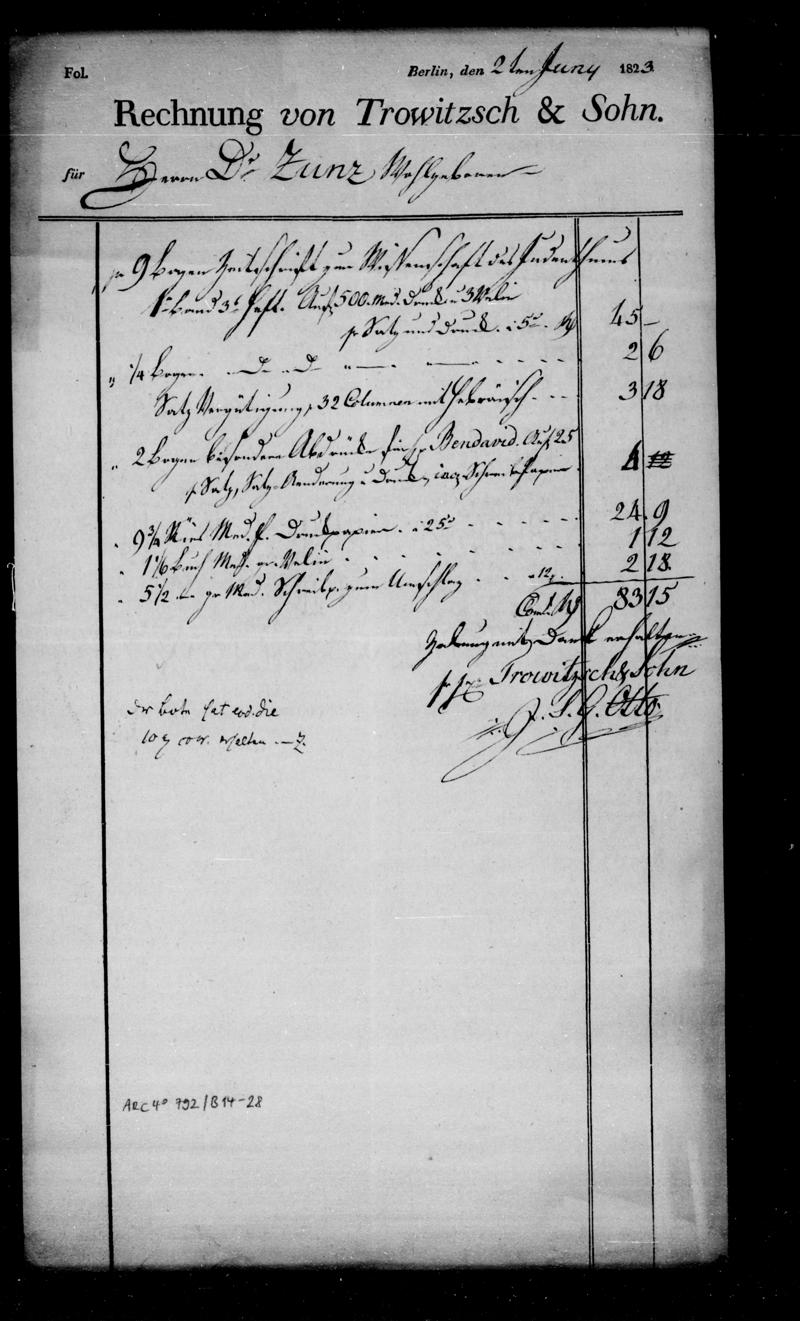 Fol.
Berlin, den 2ten Juny 1823.
Rechnung von Trowitzsch & Sohn.
für Herrn Dr Zunz Wohlgeboren
pr 9 Bogen Zeitschrift zur Wissenschaft des Judenthums
1r Band 3s Heft. Aufl 500. Med. Druck u 3 Velin
pr Satz und Druck. a 5 45 –
" 1/4 Bogen 2 6
Satz Vergütigung, 32 Columnen mit Hebräisch 3 18
" 2 Bogen besondere Abdrücke für Bendavid. Aufl 25
pr Satz, Satz-Aenderung u Druck Schreibpapier 4 12
" 9 3/4 Ries Med. Druckpapier. a 25 24. 9
" 1 1/6 Buch Med. gr. Velin 1 12
" 5 1/2 gr Med. Schreibp. zum Umschlag a 12 2 18.
83 15
Zahlung mit Dank erhalten
Trowitzsch & Sohn
J. S. G. Otto
Der Bote hat die
10 erhalten. – Z.
ARC 4º 792/B14-28